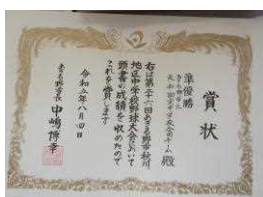 賞状
準優勝
殿
右は第二十六回あきる野市秋川
地区中学校野球大会において
頭書の成績を収めたので
これを賞します
令和五年八月四日
あきる野市長 中嶋博幸